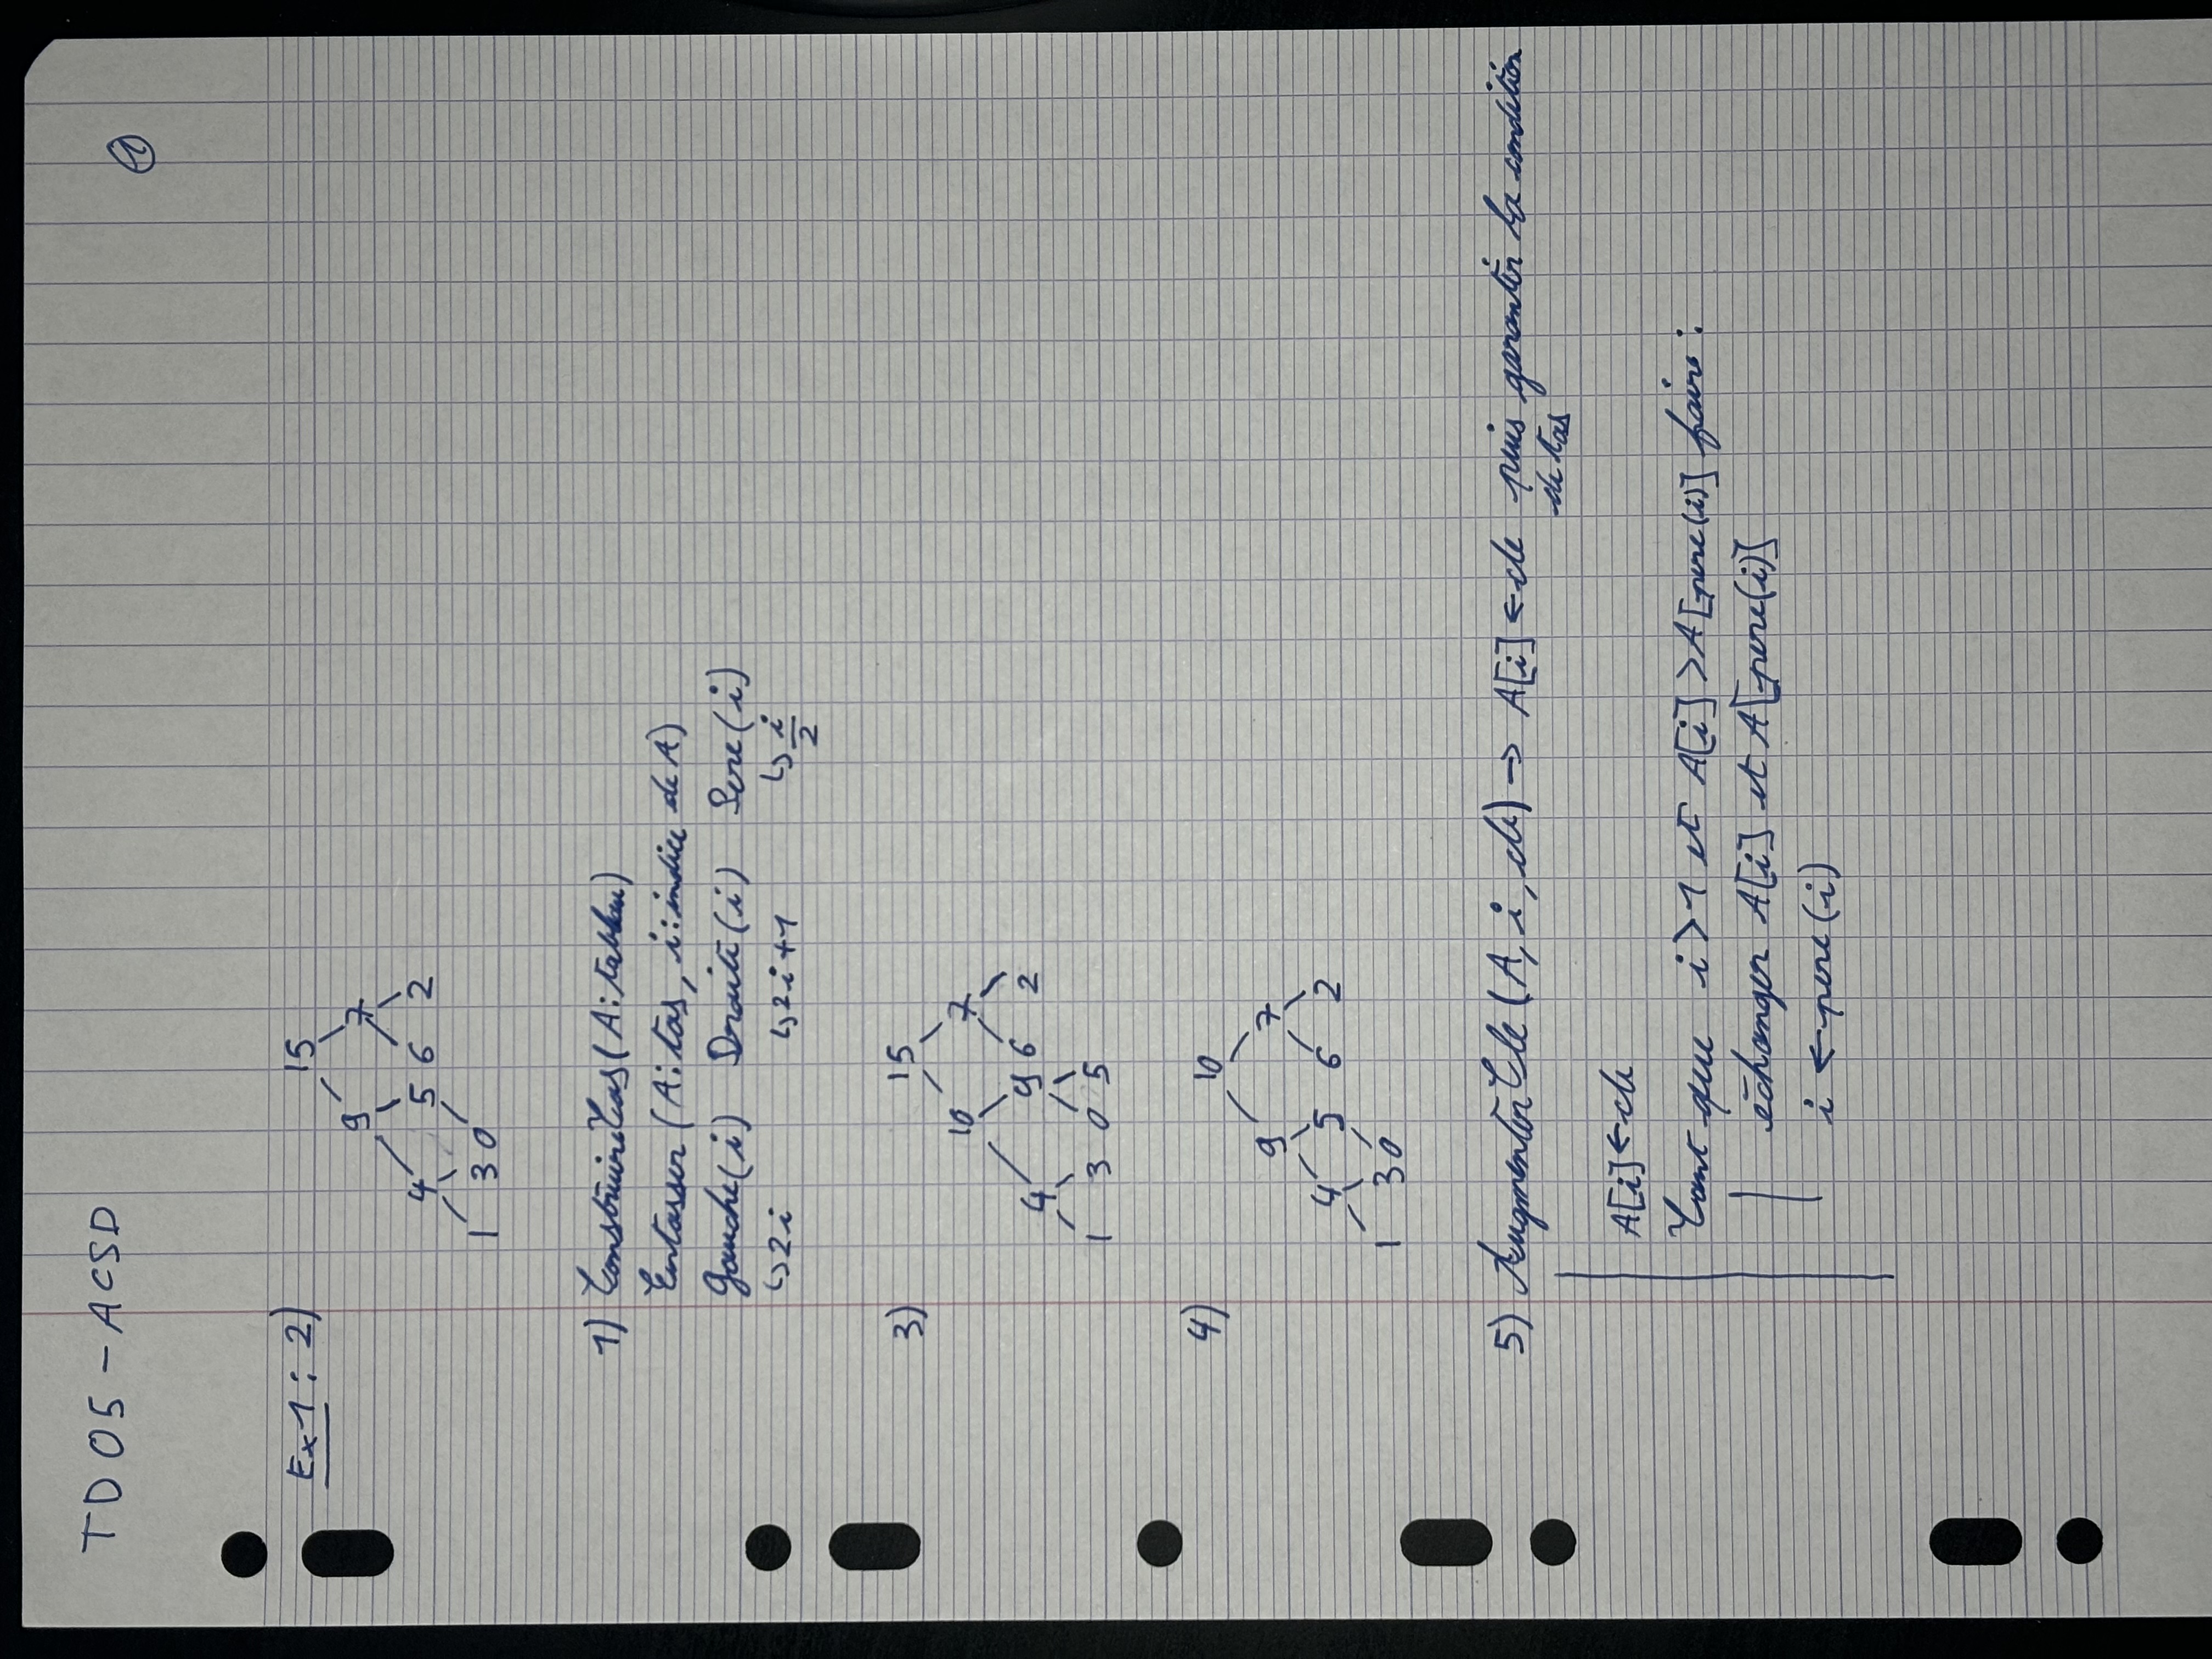 TD05 - ACSD
①
Ex1 : 2)
15
9 7
4 5 6 2
1 3 0
1) ConstruireTas (A: tableau)
Entasser (A: tas, i: indice de A)
Gauche(i) Droite(i) Pere(i)
↳ 2i ↳ 2i+1 ↳ i/2
3)
15
10 7
4 9 6 2
1 3 0 5
4)
10
9 7
4 5 6 2
1 3 0
5) AugmenterCle (A, i, cle) → A[i] ← cle puis garantir la condition
de tas
A[i] ← cle
Tant que i > 1 et A[i] > A[pere(i)] faire :
échanger A[i] et A[pere(i)]
i ← pere(i)